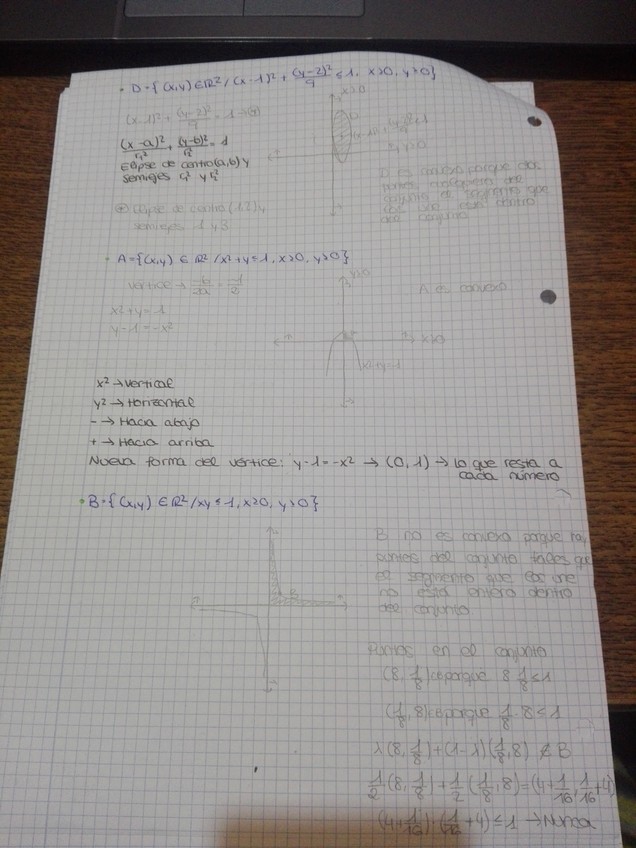 · D={(x,y) ∈ℝ²/(x-1)² + (y-2)²/9 ≤1, x≥0, y≥0}
(x-1)² + (y-2)²/9 = 1
(x-a)²/r₁² + (y-b)²/r₂² = 1
Elipse de centro (a,b) y
semiejes r₁² y r₂²
Elipse de centro (1,2) y
semiejes 1 y 3
x≥0
y≥0
D es convexo porque dos
puntos cualquiera del
conjunto el segmento que
los une está dentro
del conjunto
· A={(x,y) ∈ ℝ²/x²+y≤1, x≥0, y≥0}
vértice → -b/2a = -1/2
x²+y=1
y-1=-x²
y≥0
A es convexo
x≥0
x²+y=1
x² → vertical
y² → Horizontal
- → Hacia abajo
+ → Hacia arriba
Nueva forma del vértice: y-1=-x² → (0,1) → lo que resta a
cada número
· B={(x,y) ∈ℝ²/xy≤1, x≥0, y≥0}
B
B no es convexo porque hay
puntos del conjunto tales que
el segmento que los une
no está entero dentro
del conjunto
Puntos en el conjunto
(8, 1/8) ∈B porque 8 1/8 ≤1
(1/8, 8)∈B porque 1/8 8≤1
λ(8, 1/8)+(1-λ)(1/8, 8) ∉ B
1/2(8, 1/8)+1/2(1/8, 8)=(4+1/16, 1/16+4)
(4+1/16)·(1/16+4)≤1 → Nunca